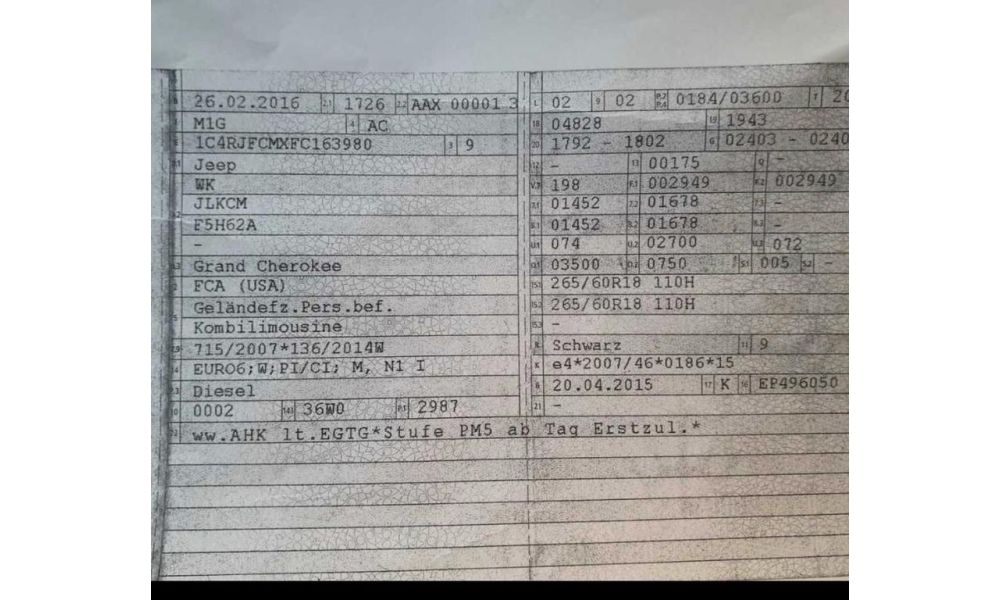 26.02.2016 2.1 1726 2.2 AAX 00001 3
M1G 4 AC
1C4RJFCMXFC163980 3 9
Jeep
WK
JLKCM
F5H62A
-
Grand Cherokee
FCA (USA)
Geländefz.Pers.bef.
Kombilimousine
715/2007*136/2014W
EURO6;W;PI/CI; M, N1 I
Diesel
0002 14.1 36W0 P.1 2987
ww.AHK lt.EGTG*Stufe PM5 ab Tag Erstzul.*
L 02 9 02 P.2 P.4 0184/03600 T 20
18 04828 19 1943
20 1792 - 1802 G 02403 - 0240
12 - 13 00175 Q -
V.7 198 F.1 002949 F.2 002949
7.1 01452 7.2 01678 7.3 -
8.1 01452 8.2 01678 8.3 -
U.1 074 U.2 02700 U.3 072
O.1 03500 O.2 0750 S.1 005 S.2 -
15.1 265/60R18 110H
15.2 265/60R18 110H
15.3 -
R Schwarz 11 9
K e4*2007/46*0186*15
6 20.04.2015 17 K 16 EP496050
21 -